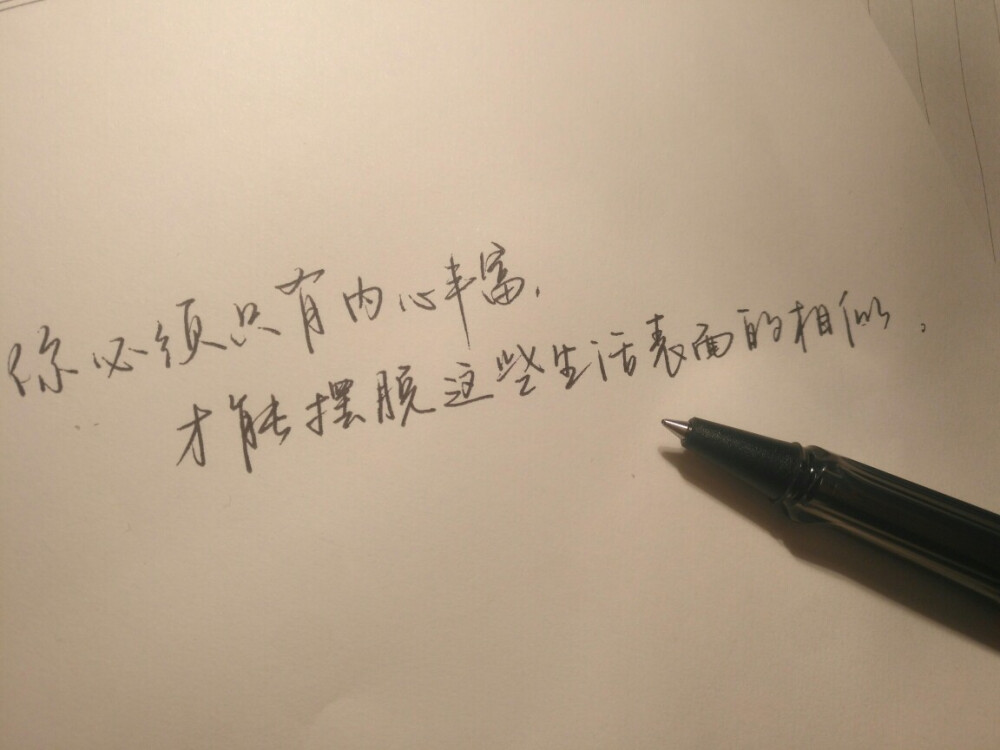 你必须只有内心丰富，
才能摆脱这些生活表面的相似．